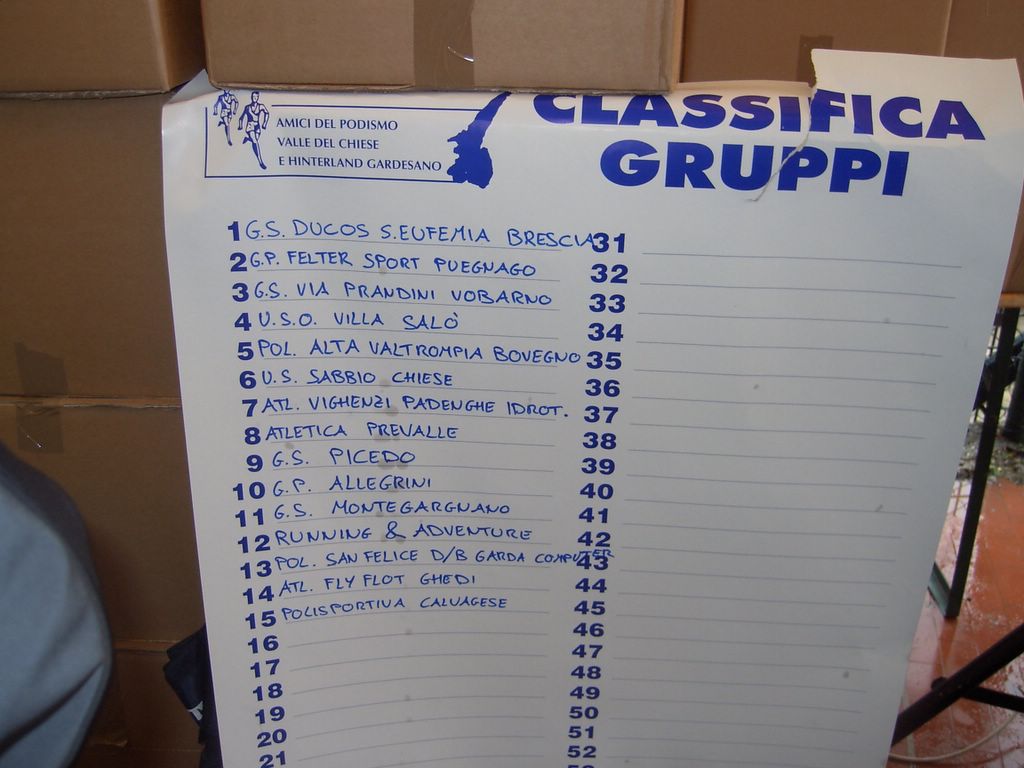 AMICI DEL PODISMO
VALLE DEL CHIESE
E HINTERLAND GARDESANO
CLASSIFICA
GRUPPI
1 G.S. DUCOS S.EUFEMIA BRESCIA
2 G.P. FELTER SPORT PUEGNAGO
3 G.S. VIA PRANDINI VOBARNO
4 U.S.O. VILLA SALÒ
5 POL. ALTA VALTROMPIA BOVEGNO
6 U.S. SABBIO CHIESE
7 ATL. VIGHENZI PADENGHE IDROT.
8 ATLETICA PREVALLE
9 G.S. PICEDO
10 G.P. ALLEGRINI
11 G.S. MONTEGARGNANO
12 RUNNING & ADVENTURE
13 POL. SAN FELICE D/B GARDA COMPUTER
14 ATL. FLY FLOT GHEDI
15 POLISPORTIVA CALVAGESE
16
17
18
19
20
21
31
32
33
34
35
36
37
38
39
40
41
42
43
44
45
46
47
48
49
50
51
52